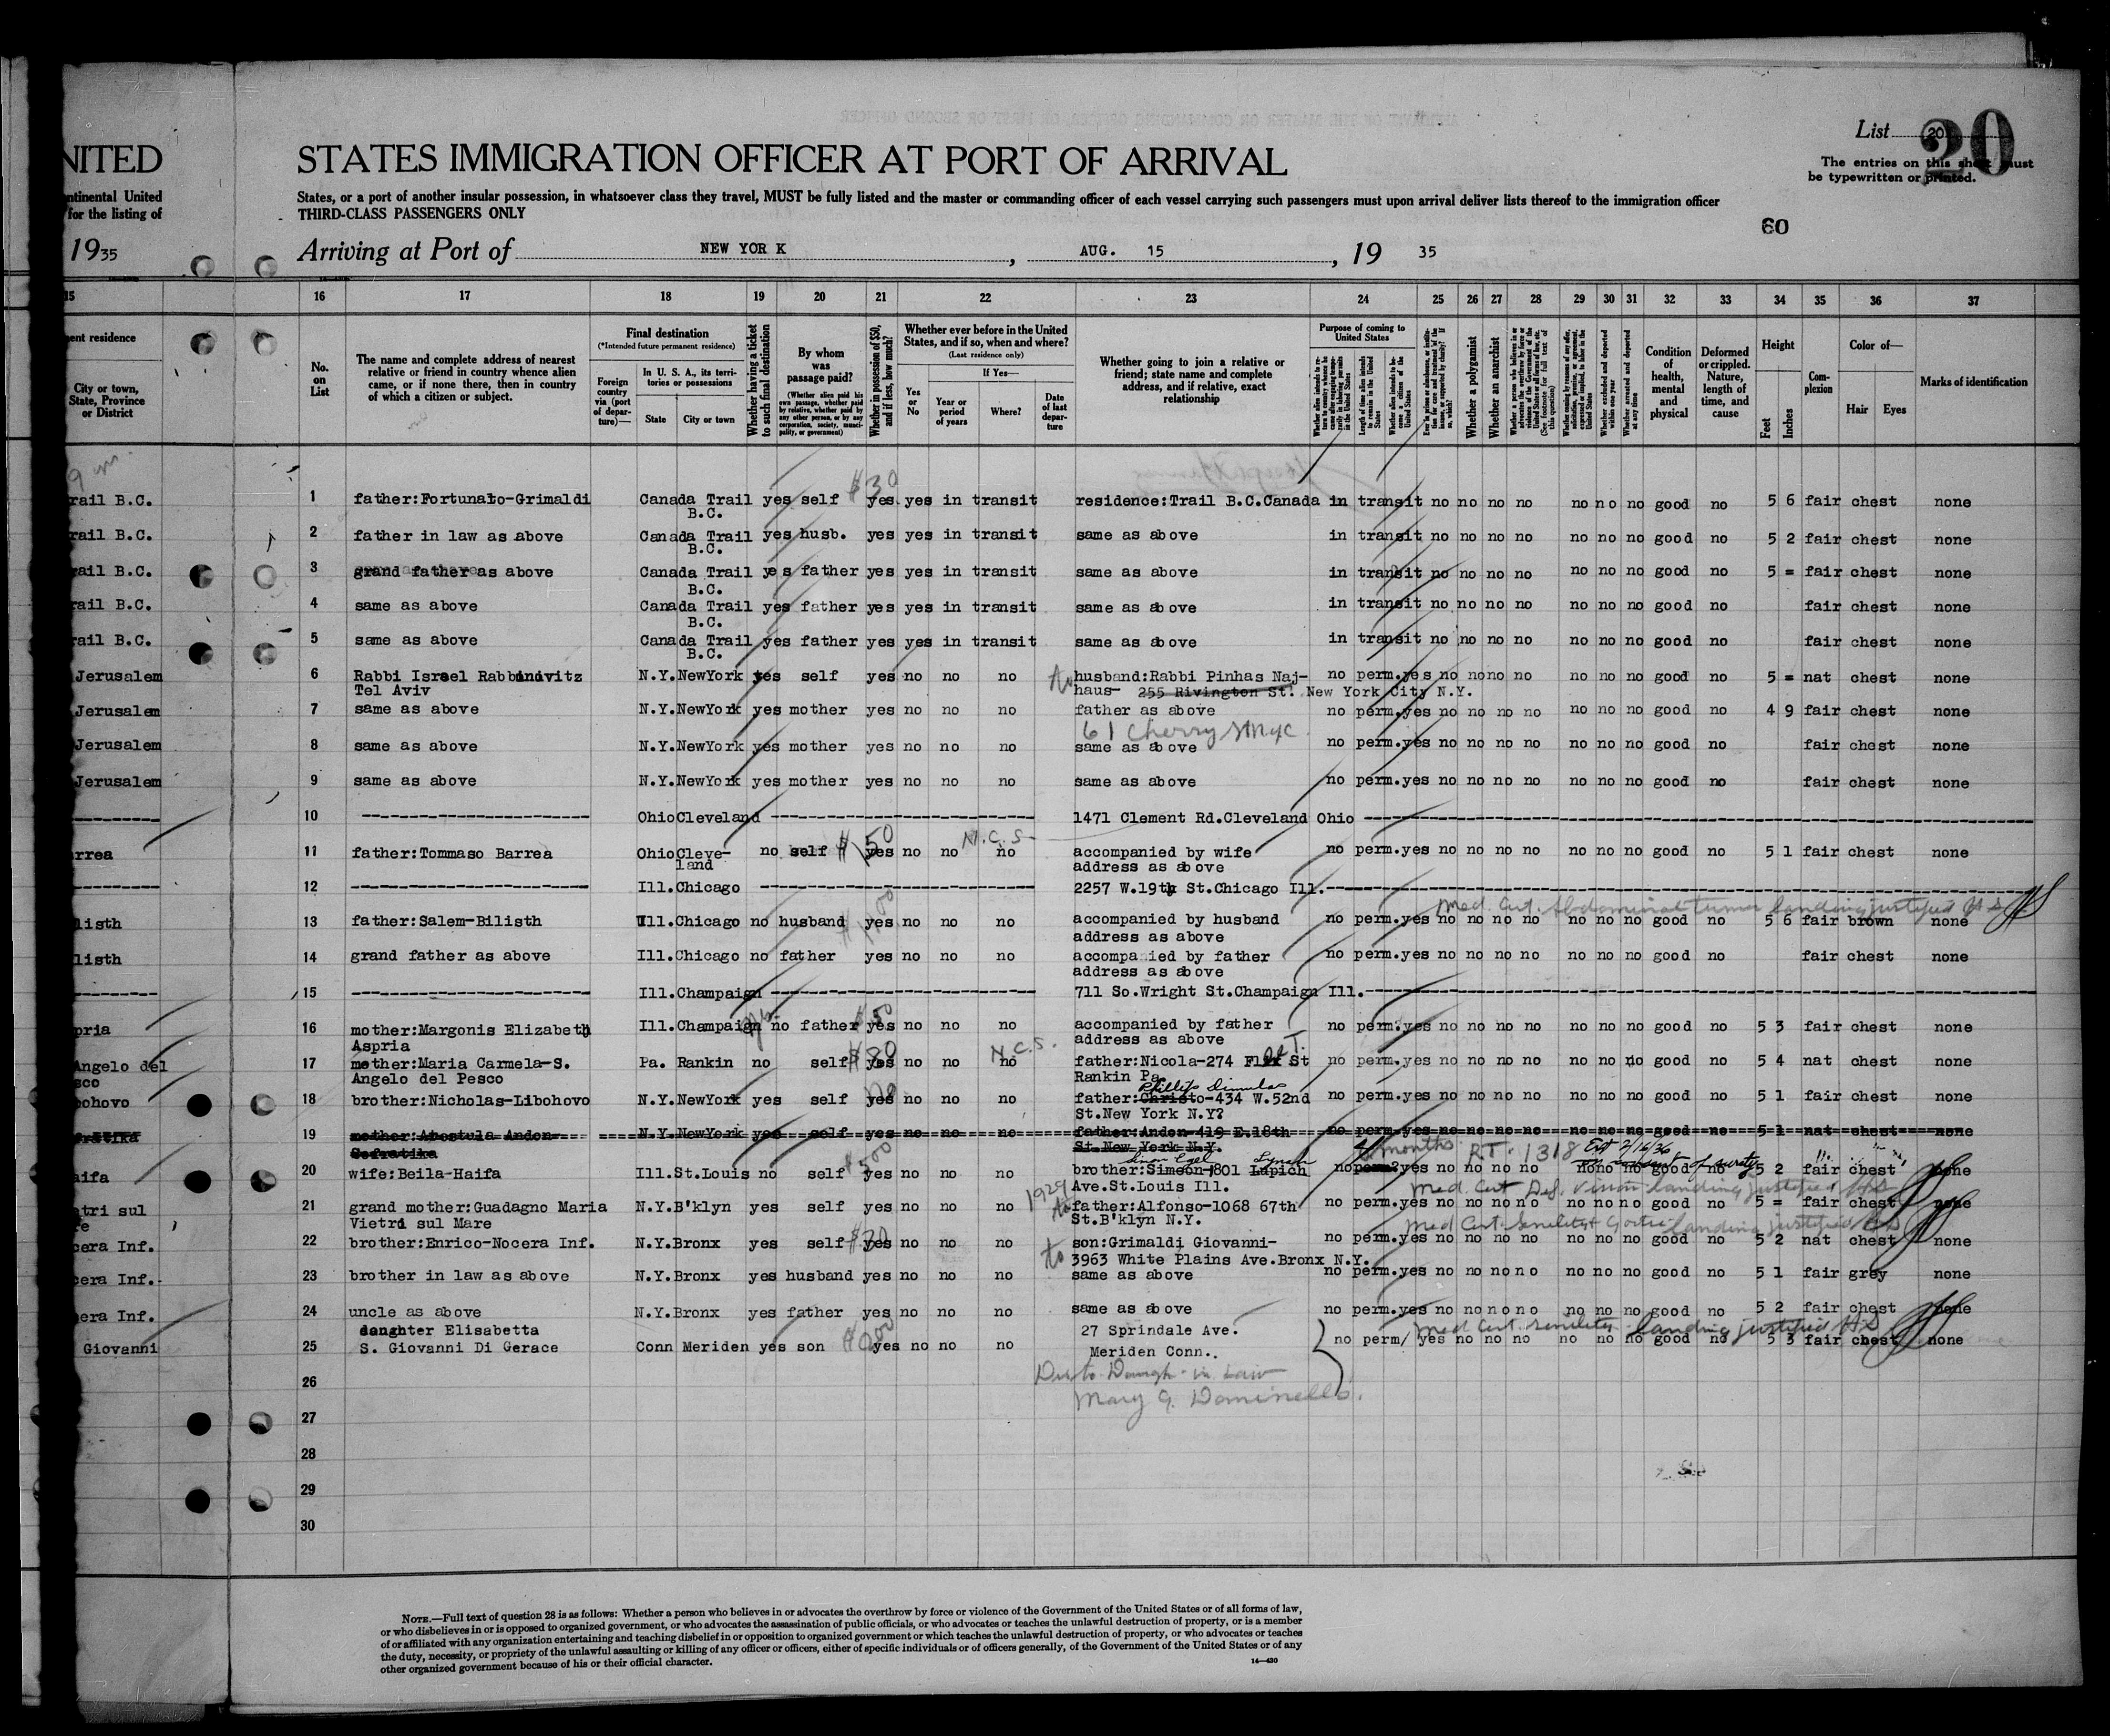 List 20
20
The entries on this sheet must
be typewritten or printed.
NITED STATES IMMIGRATION OFFICER AT PORT OF ARRIVAL
ntinental United States, or a port of another insular possession, in whatsoever class they travel, MUST be fully listed and the master or commanding officer of each vessel carrying such passengers must upon arrival deliver lists thereof to the immigration officer
for the listing of THIRD-CLASS PASSENGERS ONLY
60
1935 Arriving at Port of NEW YORK, AUG. 15, 1935
15 16 17 18 19 20 21 22 23 24 25 26 27 28 29 30 31 32 33 34 35 36 37
ent residence
City or town, State, Province or District
No. on List
The name and complete address of nearest relative or friend in country whence alien came, or if none there, then in country of which a citizen or subject.
Final destination
(*Intended future permanent residence)
Foreign country via (port of departure)—
In U. S. A., its territories or possessions
State City or town
Whether having a ticket to such final destination
By whom was passage paid?
(Whether alien paid his own passage, whether paid by relative, whether paid by any other person, or by any corporation, society, municipality, or government)
Whether in possession of $50, and if less, how much?
Whether ever before in the United States, and if so, when and where?
(Last residence only)
Yes or No
If Yes—
Year or period of years
Where?
Date of last departure
Whether going to join a relative or friend; state name and complete address, and if relative, exact relationship
Purpose of coming to United States
Whether a polygamist
Whether an anarchist
Condition of health, mental and physical
Deformed or crippled. Nature, length of time, and cause
Height
Feet Inches
Complexion
Color of—
Hair Eyes
Marks of identification
$30
rail B.C. 1 father:Fortunato-Grimaldi Canada Trail yes self yes yes in transit residence:Trail B.C.Canada in transit no no no no no no no good no 5 6 fair chest none
B.C.
rail B.C. 2 father in law as above Canada Trail yes husb. yes yes in transit same as above in transit no no no no no no no good no 5 2 fair chest none
B.C.
rail B.C. 3 grand father as above Canada Trail yes father yes yes in transit same as above in transit no no no no no no no good no 5 = fair chest none
B.C.
rail B.C. 4 same as above Canada Trail yes father yes yes in transit same as above in transit no no no no no no no good no fair chest none
B.C.
rail B.C. 5 same as above Canada Trail yes father yes yes in transit same as above in transit no no no no no no no good no fair chest none
B.C.
Jerusalem 6 Rabbi Israel Rabbinivitz N.Y.NewYork yes self yes no no no to husband:Rabbi Pinhas Naj- no perm.yes no no no no no no no good no 5 = nat chest none
Tel Aviv haus- 255 Rivington St. New York City N.Y.
Jerusalem 7 same as above N.Y.NewYork yes mother yes no no no father as above no perm.yes no no no no no no no good no 4 9 fair chest none
61 Cherry St NYC
Jerusalem 8 same as above N.Y.NewYork yes mother yes no no no same as above no perm.yes no no no no no no no good no fair chest none
Jerusalem 9 same as above N.Y.NewYork yes mother yes no no no same as above no perm.yes no no no no no no no good no fair chest none
10 Ohio Cleveland 1471 Clement Rd.Cleveland Ohio
$50 N.C.S-
rrea 11 father:Tommaso Barrea Ohio Cleve- no self yes no no no accompanied by wife no perm.yes no no no no no no no good no 5 1 fair chest none
land address as above
12 Ill.Chicago 2257 W.19th St.Chicago Ill.
Med. Cert. Abdominal tumor landing justified
listh 13 father:Salem-Bilisth Ill.Chicago no husband yes no no no accompanied by husband no perm.yes no no no no no no no good no 5 6 fair brown none
address as above
listh 14 grand father as above Ill.Chicago no father yes no no no accompanied by father no perm.yes no no no no no no no good no fair chest none
address as above
15 Ill.Champaign 711 So.Wright St.Champaign Ill.
$50
pria 16 mother:Margonis Elizabeth Ill.Champaign no father yes no no no accompanied by father no perm.yes no no no no no no no good no 5 3 fair chest none
Aspria address as above
$80 N.C.S.
Angelo del 17 mother:Maria Carmela-S. Pa. Rankin no self yes no no no father:Nicola-274 St no perm.yes no no no no no no no good no 5 4 nat chest none
sco Angelo del Pesco Rankin Pa.
Phillip Dimulas
bohovo 18 brother:Nicholas-Libohovo N.Y.NewYork yes self yes no no no father:Christo-434 W.52nd no perm.yes no no no no no no no good no 5 1 fair chest none
St.New York N.Y?
19 mother:Abestula Andon N.Y.NewYork yes self yes no no no father:Andon 419 E.18th no perm.yes no no no no no no no good no 5 1 nat chest none
Sofratika St New York N.Y.
$500 months RT. 1318 Ext 2/16/36
aifa 20 wife:Beila-Haifa Ill.St.Louis no self yes no no no brother:Simeon-1801 Lupich no perm?yes no no no no no no no good no 5 2 fair chest none
Lynch
Ave.St.Louis Ill.
Med. Cert Def. vision landing justified
etri sul 21 grand mother:Guadagno Maria N.Y.B'klyn yes self yes no no no 1929 to father:Alfonso-1068 67th no perm.yes no no no no no no no good no 5 = fair chest none
re Vietri sul Mare St.B'klyn N.Y.
Med Cert. Senility landing justified
$30
cera Inf. 22 brother:Enrico-Nocera Inf. N.Y.Bronx yes self yes no no no to son:Grimaldi Giovanni- no perm.yes no no no no no no no good no 5 2 nat chest none
3963 White Plains Ave.Bronx N.Y.
cera Inf. 23 brother in law as above N.Y.Bronx yes husband yes no no no same as above no perm.yes no no no no no no no good no 5 1 fair grey none
cera Inf. 24 uncle as above N.Y.Bronx yes father yes no no no same as above no perm.yes no no no no no no no good no 5 2 fair chest none
daughter Elisabetta 27 Sprindale Ave. Med Cert. senility landing justified
Giovanni 25 S. Giovanni Di Gerace Conn Meriden yes son yes no no no Meriden Conn. no perm/ yes no no no no no no good no 5 3 fair chest none
26 Daugh. in Law
Mary G. Dominello.
27
28
29
30
NOTE.—Full text of question 28 is as follows: Whether a person who believes in or advocates the overthrow by force or violence of the Government of the United States or of all forms of law,
or who disbelieves in or is opposed to organized government, or who advocates the assassination of public officials, or who advocates or teaches the unlawful destruction of property, or is a member
of or affiliated with any organization entertaining and teaching disbelief in or opposition to organized government or which teaches the unlawful destruction of property, or who advocates or teaches
the duty, necessity, or propriety of the unlawful assaulting or killing of any officer or officers, either of specific individuals or of officers generally, of the Government of the United States or of any
other organized government because of his or their official character.
14—430